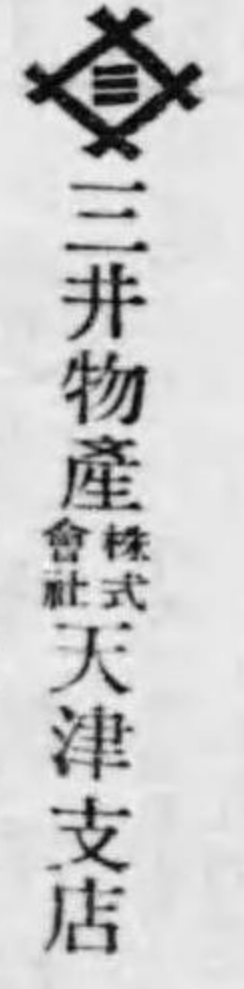 三井物產株式會社天津支店